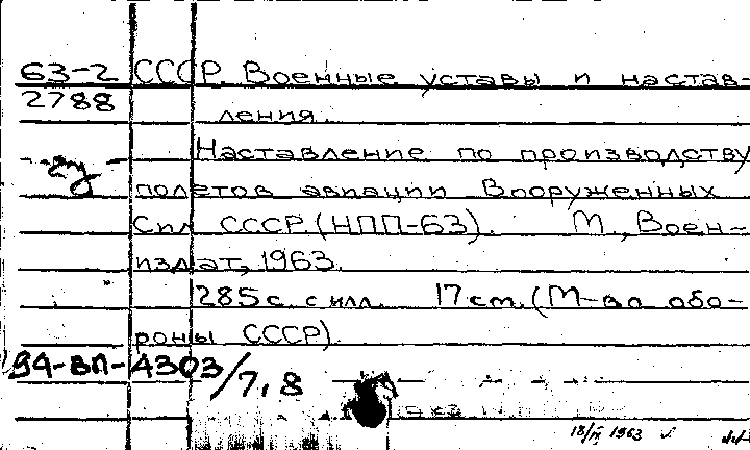 63-2 СССР. Военные уставы и настав-
2788 ления.
Наставление по производству
полетов авиации Вооруженных
Сил СССР. (НПП-63). М., Воен-
издат, 1963.
285 с. с илл. 17 см. (М-во обо-
роны СССР).
94-ВП-4303/7,8
18/IX 1963